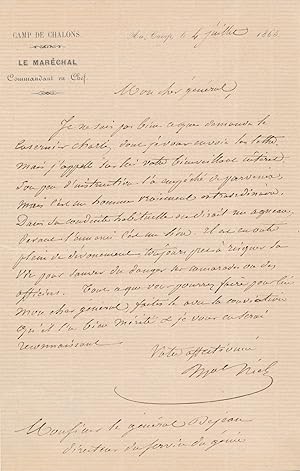 CAMP DE CHALONS.
LE MARÉCHAL
Commandant en Chef.
Au Camp le 4 juillet 186
Mon cher général,
Je ne sais pas bien ce que demande le
casernier Charle, dont je vous envoie la lettre
mais j'appelle sur lui votre bienveillant intérêt
Son peu d'instruction l'a empêché de parvenir
mais c'est un homme vraiment extraordinaire.
Dans sa conduite habituelle on dirait un agneau,
devant l'ennemi c'est un lion. Il est en outre
plein de dévouement toujours prêt à risquer sa
vie pour sauver du danger ses camarades ou ses
officiers. Tout ce que vous pourrez faire pour lui
mon cher général, faites le avec la conviction
qu'il l'a bien mérité et je vous en serai
reconnaissant.
Votre affectionné
Mal Niel
Monsieur le général Dejean
directeur du service du génie